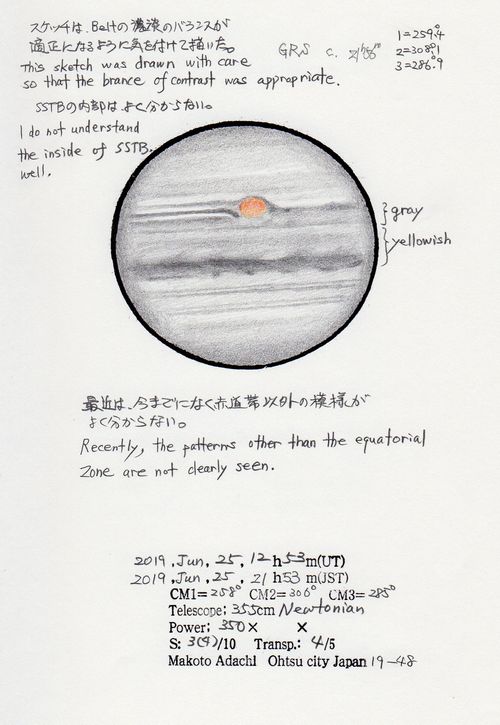 スケッチは、Beltの濃淡のバランスが
適正になるように気を付けて描いた。
This sketch was drawn with care
so that the brance of contrast was appropriate.
GRS c. 21h56m
1=259.°4
2=308.°1
3=286.°9
SSTBの内部はよく分からない。
I do not understand
the inside of SSTB.
well.
gray
yellowish
最近は、今までになく赤道帯以外の模様が
よく分からない。
Recently, the patterns other than the equatorial
zone are not clearly seen.
2019, Jun, 25, 12h53m(UT)
2019, Jun, 25, 21h53m(JST)
CM1=258° CM2=306° CM3=285°
Telescope: 355cm Newtonian
Power: 350× ×
S: 3(4)/10 Transp.: 4/5
Makoto Adachi Ohtsu city Japan 19-48